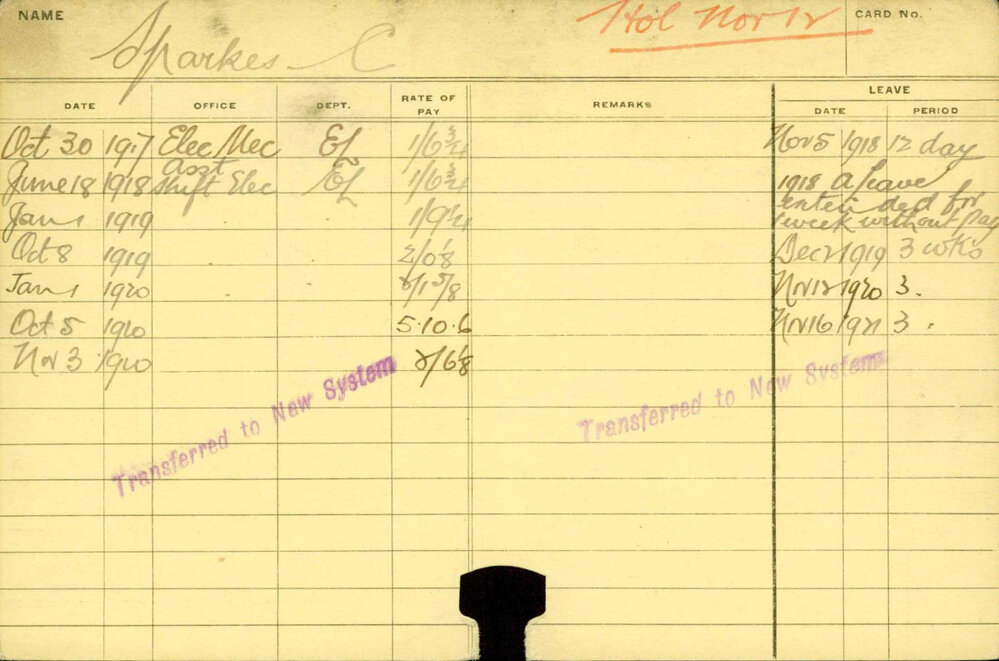 NAME
Sparkes C
Hol Nov 12
CARD No.
DATE OFFICE DEPT. RATE OF PAY REMARKS LEAVE
DATE PERIOD
Oct 30 1917 Elec Mec EL 1/6 3/4 Nov 5 1918 12 day
June 18 1918 Asst Shift Elec EL 1/6 3/4 1918 A leave
extended for
1 week without pay
Jan 1 1919 1/9 1/4
Oct 8 1919 2/0 1/8 Dec 2 1919 3 wks
Jan 1 1920 2/1 5/8 Nov 12 1920 3.
Oct 5 1920 5.10.6 Nov 16 1921 3.
Nov 3 1920 2/6 1/8
Transferred to New System
Transferred to New System